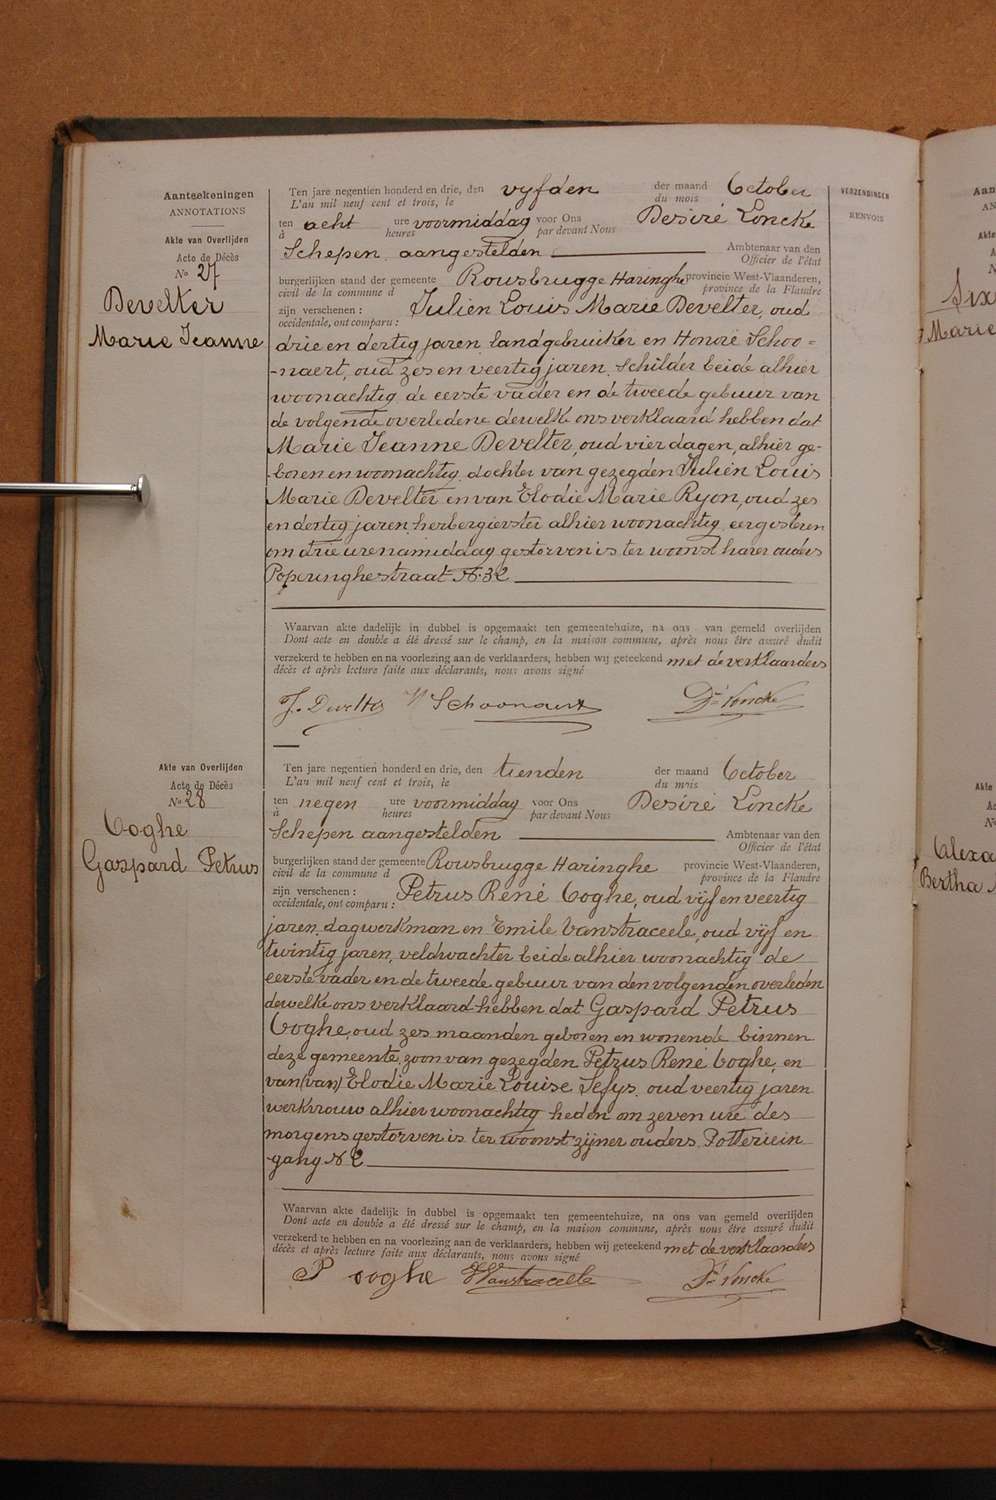 Aanteekeningen
ANNOTATIONS
Akte van Overlijden
Acte de Décès
No 27
Develter
Marie Jeanne
Ten jare negentien honderd en drie, den vyfden der maand October
L'an mil neuf cent et trois, le du mois
ten acht ure voormiddag voor Ons Desiré Loncke
à heures par devant Nous
Schepen aangestelden Ambtenaar van den
Officier de l'état
burgerlijken stand der gemeente Rousbrugge Haringhe provincie West-Vlaanderen,
civil de la commune d province de la Flandre
zijn verschenen : Julien Louis Marie Develter, oud
occidentale, ont comparu :
drie en dertig jaren, landgebruiker en Honoré Schoo=
-naert, oud zes en veertig jaren, schilder beide alhier
woonachtig de eerste vader en de tweede gebuur van
de volgende overledene dewelke ons verklaard hebben dat
Marie Jeanne Develter, oud vier dagen, alhier ge-
boren en woonachtig, dochter van gezegden Julien Louis
Marie Develter en van Elodie Marie Ryon, oud zes
en dertig jaren, herbergierster alhier woonachtig, eergisteren
om drie uren namiddag gestorven is ter woonst harer ouders
Poperinghestraat No 32
Waarvan akte dadelijk in dubbel is opgemaakt ten gemeentehuize, na ons van gemeld overlijden
Dont acte en double a été dressé sur le champ, en la maison commune, après nous être assuré dudit
verzekerd te hebben en na voorlezing aan de verklaarders, hebben wij geteekend met de verklaarders
décès et après lecture faite aux déclarants, nous avons signé
J. Develter H Schoonaert Dré Loncke
Akte van Overlijden
Acte de Décès
No 28
Coghe
Gaspard Petrus
Ten jare negentien honderd en drie, den tienden der maand October
L'an mil neuf cent et trois, le du mois
ten negen ure voormiddag voor Ons Desiré Loncke
à heures par devant Nous
Schepen aangestelden Ambtenaar van den
Officier de l'état
burgerlijken stand der gemeente Rousbrugge Haringhe provincie West-Vlaanderen,
civil de la commune d province de la Flandre
zijn verschenen : Petrus René Coghe, oud vijf en veertig
occidentale, ont comparu :
jaren, dagwerkman en Emile Vanstraceele, oud vijf en
twintig jaren, veldwachter beide alhier woonachtig de
eerste vader en de tweede gebuur van den volgenden overleden
dewelke ons verklaard hebben dat Gaspard Petrus
Coghe, oud zes maanden geboren en wonende binnen
deze gemeente, zoon van gezegden Petrus René Coghe, en
van (van) Elodie Marie Louise Sefys, oud veertig jaren
werkvrouw alhier woonachtig heden om zeven ure des
morgens gestorven is ter woonst zijner ouders Potteriein-
gang No 2
Waarvan akte dadelijk in dubbel is opgemaakt ten gemeentehuize, na ons van gemeld overlijden
Dont acte en double a été dressé sur le champ, en la maison commune, après nous être assuré dudit
verzekerd te hebben en na voorlezing aan de verklaarders, hebben wij geteekend met de verklaarders
décès et après lecture faite aux déclarants, nous avons signé
P coghe EVanstraceele Dré Loncke
VERZENDINGEN
RENVOIS
Six
Marie
Akte
Alexa
Bertha